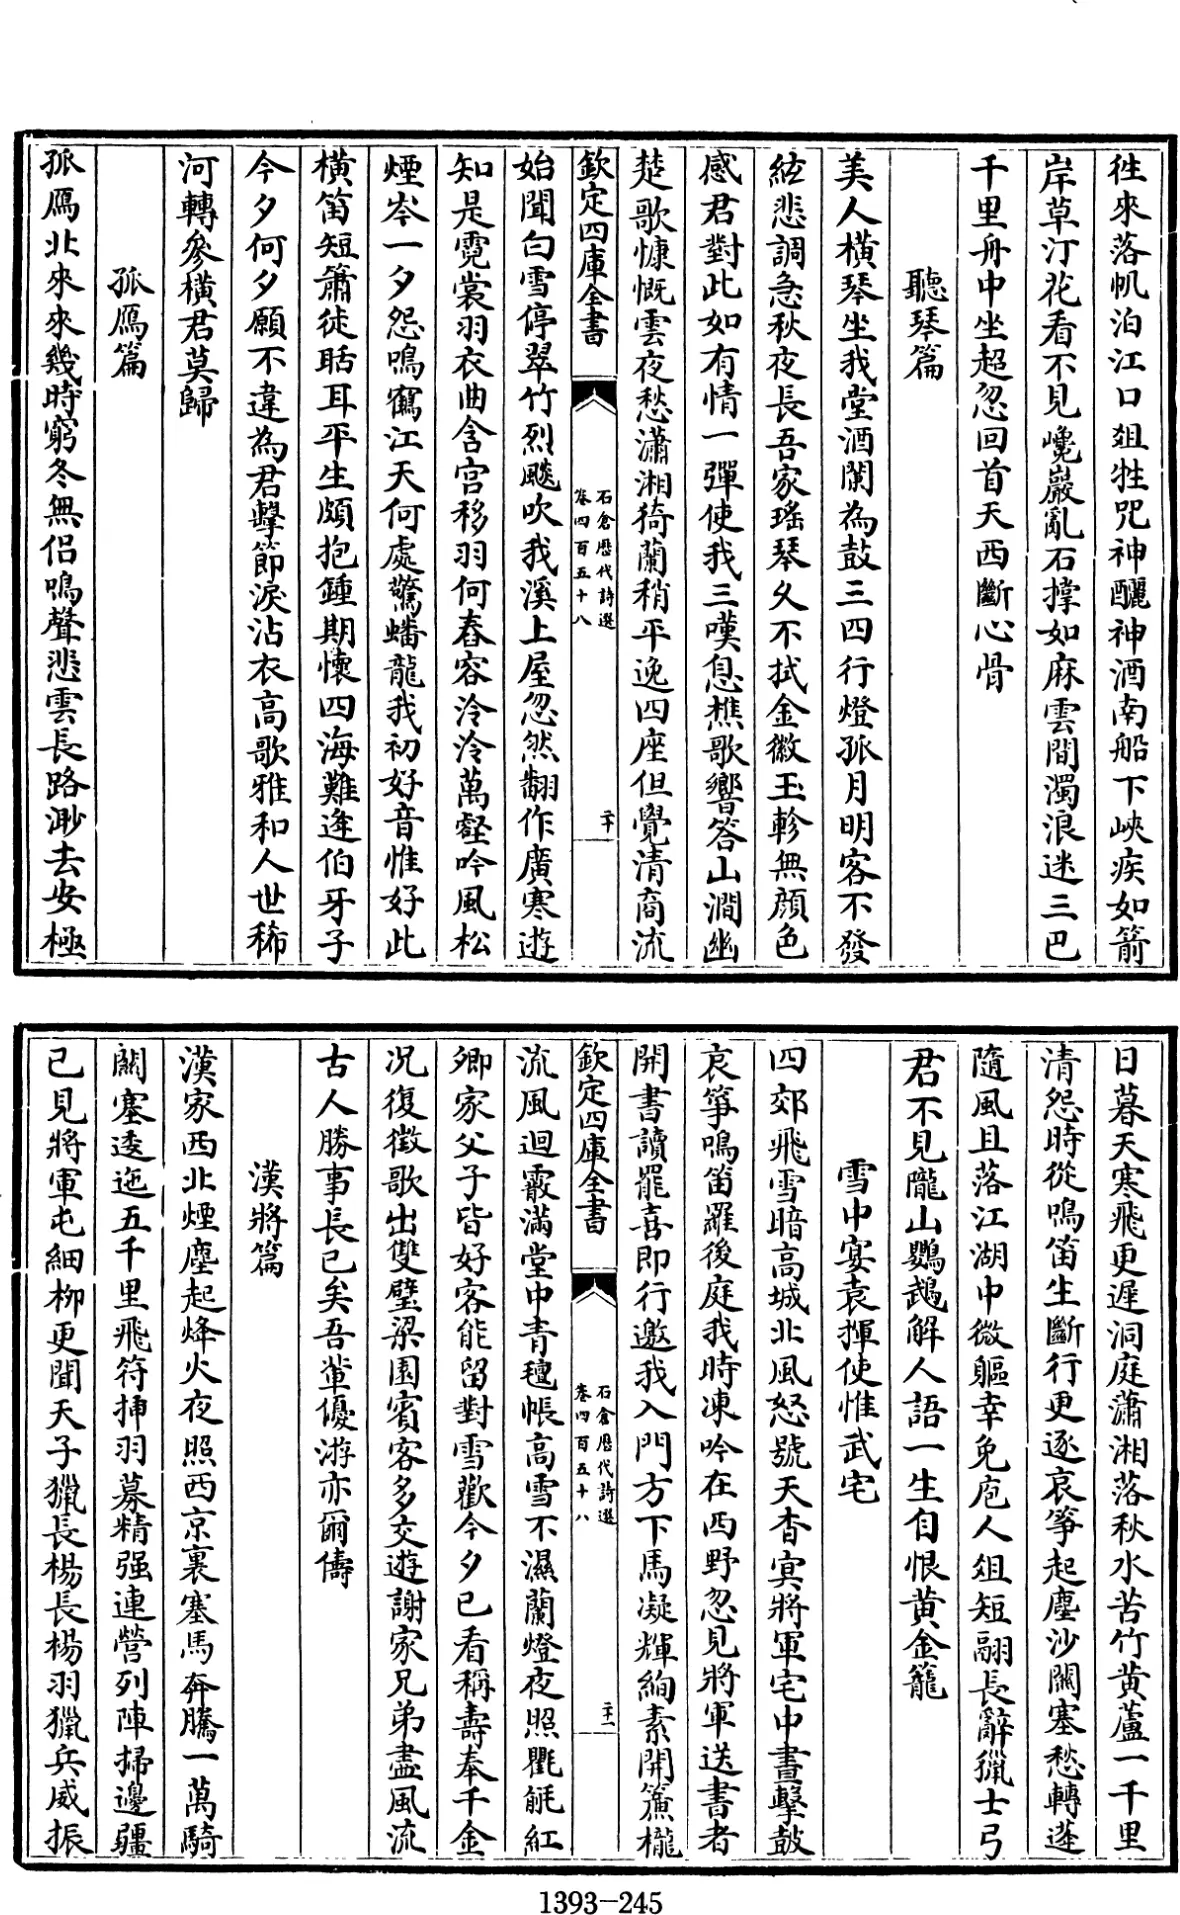 徃來落帆泊江口俎牲咒神釃神酒南船下峽疾如箭
岸草汀花看不見巉巖亂石撑如麻雲間濁浪迷三巴
千里舟中坐超忽回首天西斷心骨
聽琴篇
美人橫琴坐我堂酒闌為鼓三四行燈孤月明客不發
絃悲調急秋夜長吾家瑤琴久不拭金徽玉軫無顔色
感君對此如有情一彈使我三嘆息樵歌響答山澗幽
楚歌慷慨雲夜愁瀟湘猗蘭稍平逸四座但覺清商流
欽定四庫全書
石倉歷代詩選
卷四百五十八
二十
始聞白雪停翠竹烈颷吹我溪上屋忽然翻作廣寒遊
知是霓裳羽衣曲含宫移羽何舂容泠泠萬壑吟風松
煙岑一夕怨鳴鶴江天何處驚蟠龍我初好音惟好此
橫笛短簫徒聒耳平生頗抱鍾期懷四海難逢伯牙子
今夕何夕願不違為君擊節淚沾衣高歌雅和人世稀
河轉參橫君莫歸
孤鴈篇
孤鴈北來來幾時窮冬無侶鳴聲悲雲長路渺去安極
日暮天寒飛更遲洞庭瀟湘落秋水苦竹黄蘆一千里
清怨時從鳴笛生斷行更逐哀箏起塵沙關塞愁轉蓬
隨風且落江湖中微軀幸免庖人俎短翮長辭獵士弓
君不見隴山鸚鵡解人語一生自恨黄金籠
雪中宴袁揮使惟武宅
四郊飛雪暗高城北風怒號天杳㝠將軍宅中晝擊鼓
哀箏鳴笛羅後庭我時凍吟在西野忽見將軍送書者
開書讀罷喜即行邀我入門方下馬凝輝絢素開簾櫳
欽定四庫全書
石倉歷代詩選
卷四百五十八
二十一
流風迴霰滿堂中青氊帳高雪不濕蘭燈夜照氍毹紅
卿家父子皆好客能留對雪歡今夕已看稱壽奉千金
况復徵歌出雙璧梁園賓客多交遊謝家兄弟盡風流
古人勝事長已矣吾輩優游亦爾儔
漢將篇
漢家西北煙塵起烽火夜照西京裏塞馬奔騰一萬騎
關塞逶迤五千里飛符揷羽募精强連營列陣掃邊疆
已見將軍屯細栁更聞天子獵長楊長楊羽獵兵威振
1393-245